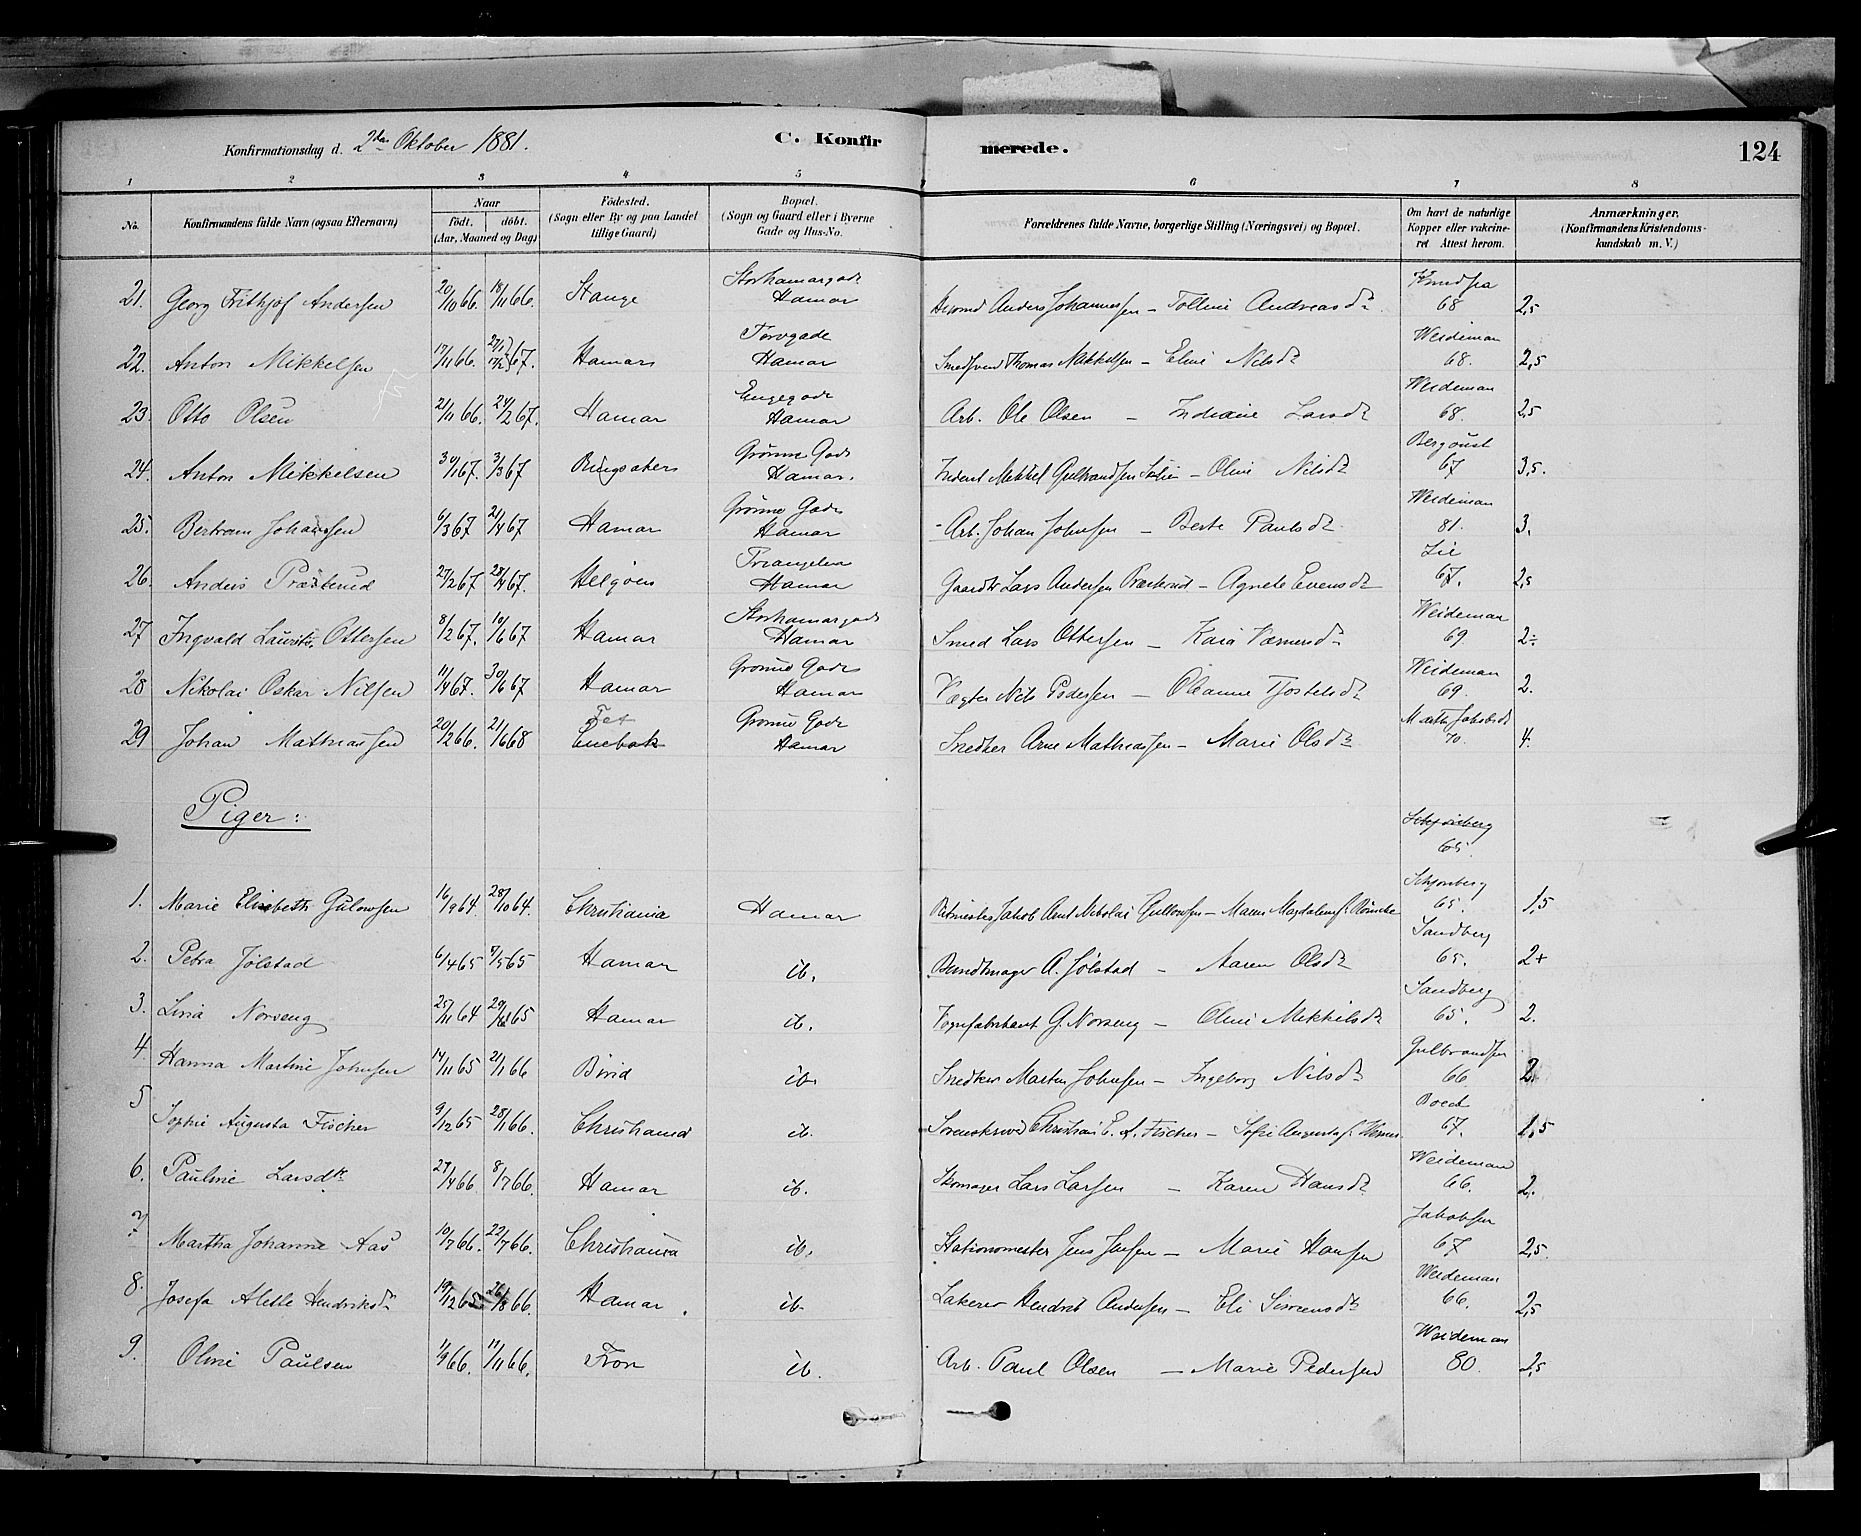 Konfirmationsdag d. 2den Oktober 1881. C. Konfirmerede. 124
1 2 3 4 5 6 7 8
No. Konfirmandens fulde Navn (ogsaa Efternavn) Naar født. døbt. (Aar, Maaned og Dag) Fødested. (Sogn eller By og paa Landet tillige Gaard) Bopæl. (Sogn og Gaard eller i Byerne Gade og Hus-No. Forældrenes fulde Navne, borgerlige Stilling (Næringsvei) og Bopæl. Om havt de naturlige Kopper eller vakcineret Attest herom. Anmærkninger. (Konfirmandens Kristendomskundskab m. V.)
21. Georg Frithjof Andersen 20/10 66. 18/11 66. Stange Storhamargade Hamar Anders Johannessen – Andreasdr. Knudsen 68 2,5
22. Anton Mikkelsen 17/11 66. 67. Hamar Torvgade Hamar Thomas Mikkelsen – Eline Nilsdr Weideman 68. 2,5
23. Otto Olsen 21/11 66. 24/2 67. Hamar Engegade Hamar Arb. Ole Olsen – Larsdr Weideman 68. 2,5
24. Anton Mikkelsen 30/1 67. 3/3 67 Ringsaker Grønne Gade Hamar. Mikkel Gulbrandsen – Oline Nilsdr 67 3,5.
25. Bertram Johansen 6/3 67 21/4 67 Hamar Grønne Gade Hamar Arb. Johan Johnsen – Berte Paulsdr Weideman 81. 3.
26. Anders Præsterud 27/2 67. 28/4 67. Helgøen Triangelen Hamar Gaardbr Lars Andersen Præsterud – Agnete Evensdr Lie 67. 2,5
27 Ingvald Lauritz Ottersen 8/2 67. 10/6 67 Hamar Storhamargade Hamar Smed Lars Ottersen – Kaia Weideman 69 2÷
28 Nikolai Oskar Nilsen 11/4 67. 30/6 67 Hamar Grønne Gade Hamar Vægter Nils Pedersen – Oleanne Weideman 69. 2.
29 Johan Mathiassen 20/2 66. 21/6 68 Fet Enebak Grønne Gade Hamar Snedker Arne Mathiassen – Marie Olsdr 70. 4.
Piger:
65.
1. Marie Elisabeth Gulowsen 16/9 64. 28/10 64. Christiania Hamar Jakob Nikolai Gullowsen – Maren 65. 1,5
2. Petra Jølstad 6/4 65 7/5 65 Hamar ib. Bundtmager A. Jølstad – Maren Olsdr Sandberg 65. 2+
3. Lina Norseng 25/11 64 65 Hamar ib. Vognfabrikant G. Norseng – Oline Mikkelsdr Sandberg 65. 2.
4. Hanna Martine Johnsen 14/11 65 21/1 66 Birid ib. Snedker Martin Johnsen – Ingeborg Nilsdr Gulbrandsen 66 2.
5 Sophie Augusta Fischer 9/12 65 28/1 66. Christiania ib. Sorenskriver Christian E. A. Fischer – Sofie Augusta Boeck 67. 1,5
6. Pauline Larsdtr. 27/4 66 8/7 66. Hamar ib. Skomager Lars Larsen – Karen Hansdr Weideman 66. 2.
7. Martha Johanne Aas 10/7 66. 22/7 66. Christiania ib. Stationsmester Jens Jensen – Marie Hansen Jakobsen 67 2,5.
8. Josefa Alette Hendriksdr 19/12 65 26/8 66. Hamar. ib. Hendrik Andersen – Eli Simensdr Weideman 66. 2,5
9. Oline Paulsen 1/9 66. 11/11 66. Fron ib. Arb. Paul Olsen – Marie Pedersen Weideman 80. 2,5